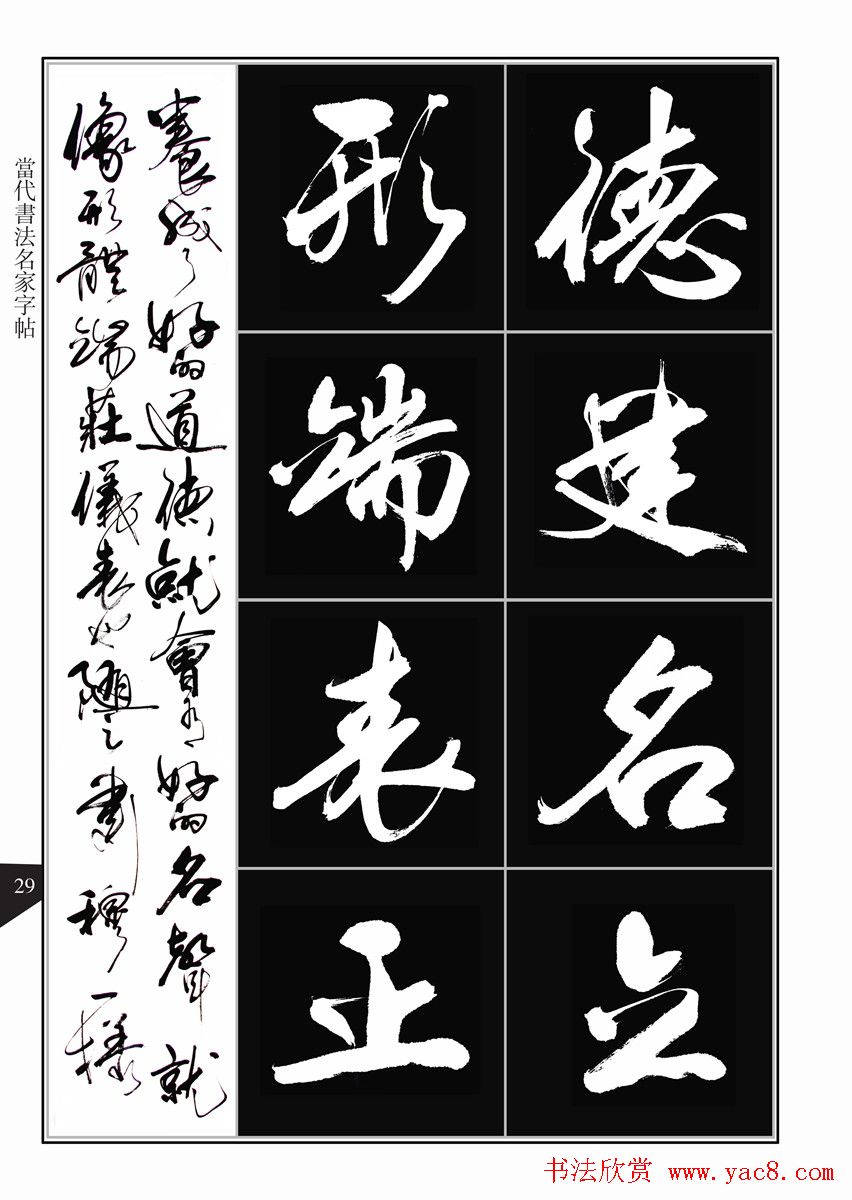 德建名立
形端表正
養成了好的道德就會有好的名聲就
像形體端莊儀表也隨之肅穆一樣
當代書法名家字帖
29
书法欣赏 www.yac8.com